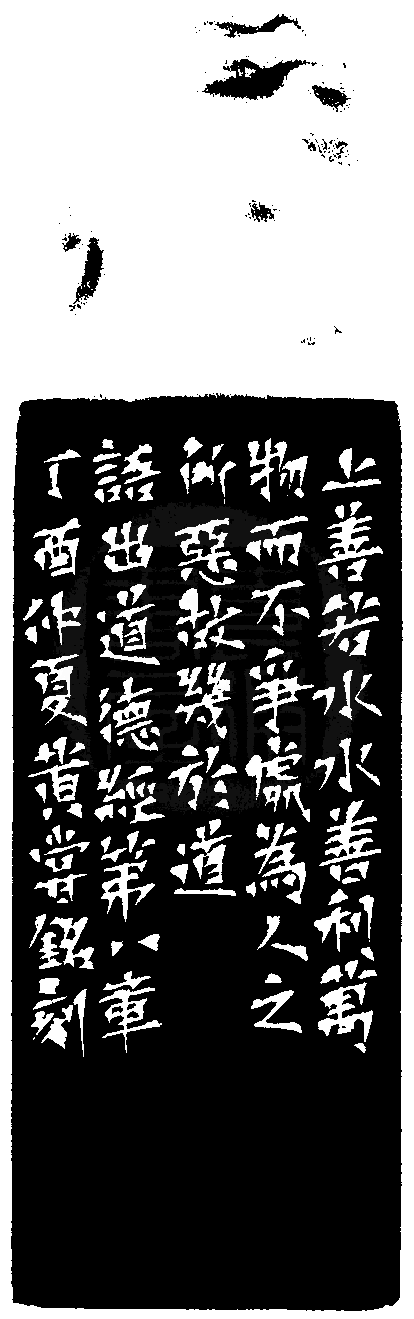 上善若水水善利萬
物而不爭處為人之
所惡故幾於道
語出道德經第八章
丁酉仲夏黃嘗銘刻